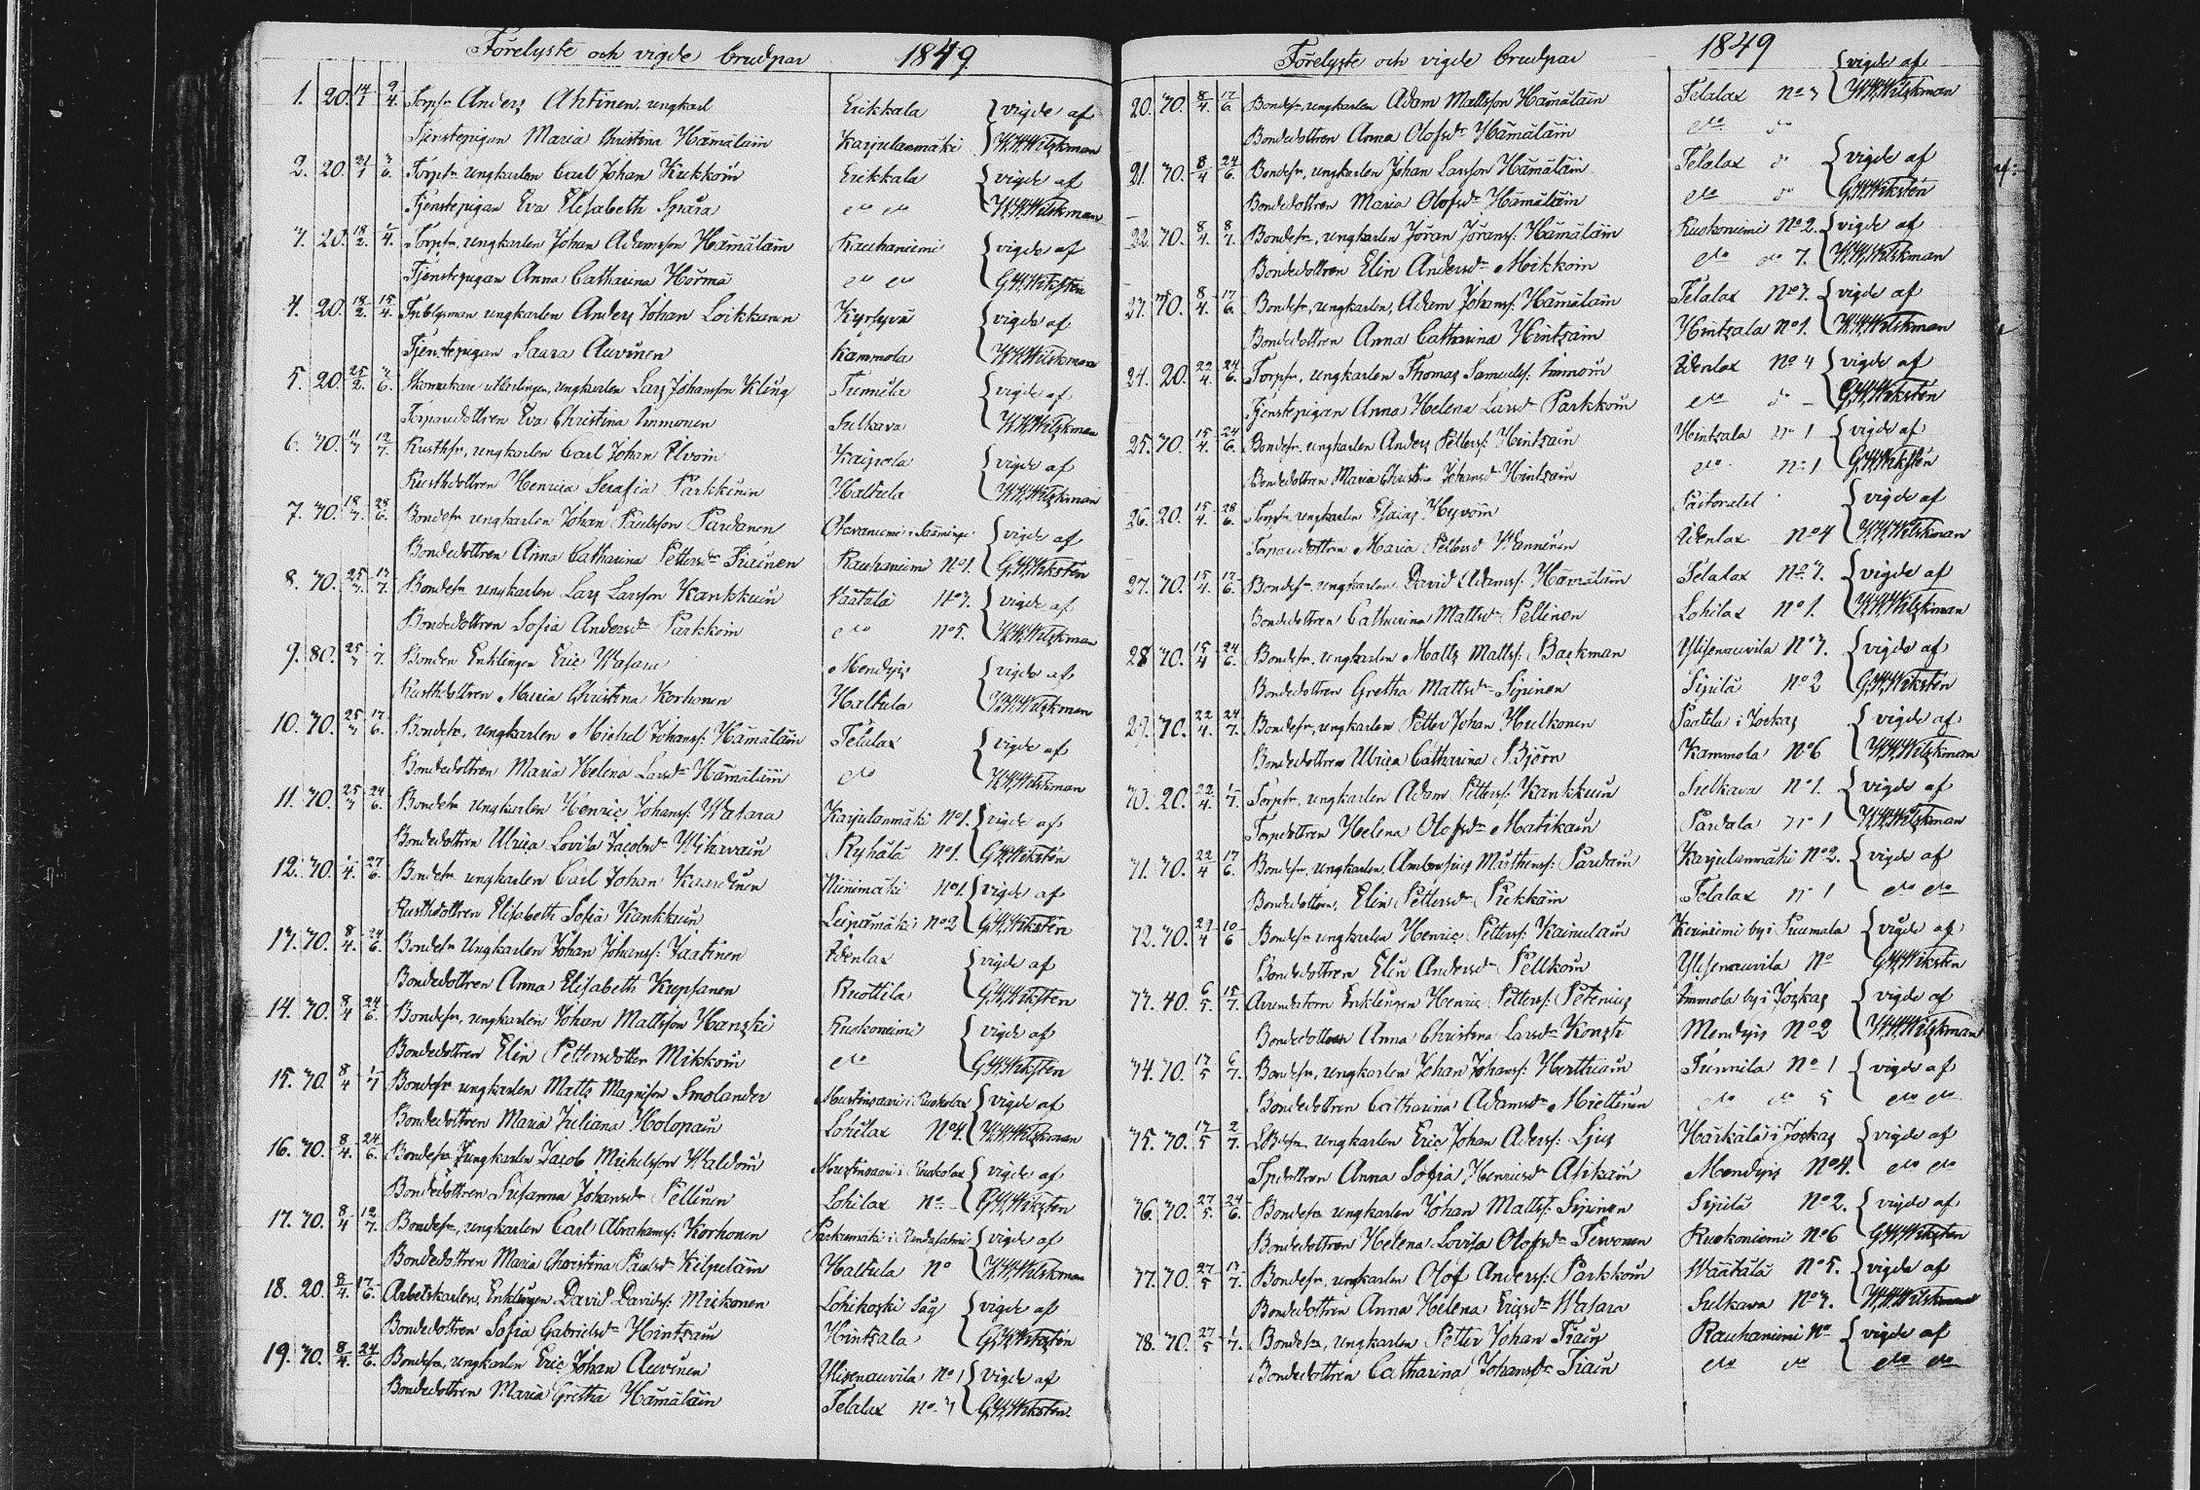 Förelyste och vigde brudpar 1849.
1. 20. 14/1 9/4. Torpr Anders Ahtinen, ungkarl Erikkala vigde af
Tjenstepigan Maria Christina Hämäläin Karjulanmäki W.Wilskman
2. 20. 21/1 Torpr ungkarlen Carl Johan Kukkoin Erikkala vigde af
Tjenstepigan Eva Elisabeth Spåra do do W.Wilskman
3. 20. 18/2. 1/4. Torpr, ungkarlen Johan Adamsson Hämäläin Rauhaniemi vigde af
Tjenstepigan Anna Catharina Hörmä do do G.W.Wiksten
4. 20. 18/2. 15/4. ungkarlen Anders Johan Loikkanen Kyrsyvä vigde af
Tjenstepigan Saara Auvinen Kammola W.Wilskman
5. 20. 25/2. ungkarlen Lars Johansson Kling Tunnila vigde af
Torparedottren Eva Christina Immonen Sulkava W.Wilskman
6. 30. 11/3 12/7. Rusthr, ungkarlen Carl Johan Elvoin Kaipola vigde af
Rusthdottren Henrica Serafia Parkkinin Haltula W.Wilskman
7. 30. 18/3. 28/6. Bondesn ungkarlen Johan Paulsson Pardanen vigde af
Bondedottren Anna Catharina Pettersdr Tiainen Rauhaniemi No 1. G.W.Wiksten
8. 30. 25/3. 17/7. Bondesn ungkarlen Lars Larsson Kankkuin Väätälä No 3. vigde af
Bondedottren Sofia Andersdr Parkkoin do No 5. W.Wilskman
9. 80. 25/3 1/7. Bonden Enklingen Eric Wasara Mendyis vigde af
Rusthdottren Maria Christina Korhonen Haltula W.Wilskman
10. 30. 25/3 17/6. Bondesn, ungkarlen Michel Johanss: Hämäläin Telalax vigde af
Bondedottren Maria Helena Larsdr Hämäläin do W.Wilskman
11. 30. 25/3 24/6. Bondesn ungkarlen Henric Johanss: Wasara Karjulanmäki No 1. vigde af
Bondedottren Ulrica Lovisa Jacobsdr Wihavain Ryhälä No 1. G.W.Wiksten
12. 30. 1/4. 27/6. Bondesn ungkarlen Carl Johan Kaartinen Niinimäki No 1. vigde af
Rusthdottren Elisabeth Sofia Kankkuin Leipämäki No 2 G.W.Wiksten
13. 30. 8/4. 24/6. Bondesn Ungkarlen Johan Johanss: Jaatinen Idenlax vigde af
Bondedottren Anna Elisabeth Kupsanen Ruottila G.W.Wiksten
14. 30. 8/4 24/6. Bondesn, ungkarlen Johan Mattsson Hanski Ruokoniemi vigde af
Bondedottren Elin Pettersdotter Mikkoin do G.W.Wiksten
15. 30. 8/4 1/7 Bondesn ungkarlen Matts Magnison Smolander Mustinsaari i Ruokolax vigde af
Bondedottren Maria Juliana Holopain Lohilax No 4. W.Wilskman
16. 30. 8/4. 24/6. Bondesn Jungkarlen Jacob Michelsson Waldoin Mustinsaari i Ruokolax vigde af
Bondedottren Susanna Johansdr Pellinen Lohilax No G.W.Wiksten
17. 30. 8/4 12/7. Bondesn, ungkarlen Carl Abrahamss: Korhonen Parkumäki i Randasalmi vigde af
Bondedottren Maria Christina Paulsdr Kilpeläin Haltula No W.Wilskman
18. 20. 8/4. 17/6. Arbetskarlen, Enklingen David Davids: Miekonen Lohikoski Såg vigde af
Bondedottren Sofia Gabrielsdr Hintsain Hintsala G.W.Wiksten
19. 30. 8/4. 24/6. Bondesn, ungkarlen Eric Johan Auvinen Ylisenauvila No 1 vigde af
Bondedottren Maria Gretha Hämäläin Telalax No 3 G.W.Wiksten.
Förelyste och vigde brudpar 1849
20. 30. 8/4. 17/6. Bondesn, ungkarlen Adam Mattsson Hämäläin Telalax No 3 vigde af W.Wilskman
Bondedottren Anna Olofsdr Hämäläin do do
21. 30. 8/4 24/6. Bondesn, ungkarlen Johan Larsson Hämäläin Telalax do vigde af
Bondedottren Maria Olofsdr Hämäläin do do G.W.Wiksten
22. 30. 8/4. 8/7. Bondesn, ungkarlen Jöran Jöranss: Hämäläin Ruokoniemi No 2. vigde af
Bondedottren Elin Andersdr Mikkoin do do 7. W.Wilskman
23. 30. 8/4. 17/6. Bondesn, ungkarlen, Adam Johanss: Hämäläin Telalax No 3. vigde af
Bondedottren Anna Catharina Hintsain Hintsala No 1. W.Wilskman
24. 20. 22/4. 24/6. Torpr, ungkarlen Thomas Samuelss: Immoin Idenlax No 4 vigde af
Tjenstepigan Anna Helena Larsdr Parkkoin do do G.W.Wiksten
25. 30. 15/4. 24/6. Bondesn, ungkarlen Anders Petterss: Hintsain Hintsala No 1 vigde af
Bondedottren Maria Christina Johansdr Hintsain do No 1 G.W.Wiksten
26. 20. 15/4. 28/6. Torpr ungkarlen Esaias Hyvöin Pastoratet vigde af
Torparedottren Maria Pettersdr Wänninen Idenlax No 4 W.Wilskman
27. 30. 15/4. 17/6. Bondesn ungkarlen David Adamss: Hämäläin Telalax No 3. vigde af
Bondedottren Catharina Mattsdr Pellinen Lohilax No 1. W.Wilskman
28 30. 15/4 24/6. Bondesn, ungkarlen Matts Mattss: Backman Ylisenauvila No 3. vigde af
Bondedottren Gretha Mattsdr Sipinen Sipilä No 2 G.W.Wiksten
29. 30. 22/4. 24/7. Bondesn, ungkarlen Petter Johan Hulkonen Paatela i Jockas vigde af
Bondedottren Ulrica Catharina Björn Kammola No 6 W.Wilskman
30. 20. 22/4. 1/7. Torpr, ungkarlen Adam Petterss: Kankkuin Sulkava No 1. vigde af
Torpdottren Helena Olofsdr Matikain Pardala No 1 W.Wilskman
31. 30. 22/4 17/6. Bondesn, ungkarlen, Ambrosius Pardain Karjulanmäki No 2. vigde af
Bondedottren, Elin Pettersdr Pickäin Telalax No 1 do do
32. 30. 10/6 Bondesn ungkarlen Henric Petterss: Kainulain by i Puumala vigde af
Bondedottren Elin Andersdr Pellkoin Ylisenauvila No G.W.Wiksten
33. 40. 6/5. 15/7. Arrendatorn Enklingen Henric Petterss: Petenius Immola by i Jockas vigde af
Bondedottren Anna Christina Larsdr Konsti Mendyis No 2 W.Wilskman
34. 30. 17/5 6/7. Bondesn, ungkarlen Johan Johanss: Herttuain Tunnila No 1 vigde af
Bondedottren Catharina Adamsdr Miettinen do do 5 do do
35. 30. 17/5 2/7. ungkarlen Eric Johan Aderss: Ljus Härkälä i Jockas vigde af
Anna Sofia Henricsdr Asikain Mendyis No 4. do do
36. 30. 27/5. 24/6. Bondesn ungkarlen Johan Mattss: Sipinen Sipilä No 2. vigde af
Bondedottren Helena Lovisa Olofsdr Tervonen Ruokoniemi No 6 G.W.Wiksten
37. 30. 27/5 17/7. Bondesn, ungkarlen Olof Anderss: Parkkoin Väätälä No 5. vigde af
Bondedottren Anna Helena Ericsdr Wasara Sulkava No 3. W.Wilskman
38. 30. 27/5 1/7. Bondesn, ungkarlen Petter Johan Tiain Rauhaniemi No vigde af
Bondedottren Catharina Johansdr Tiain do do do do